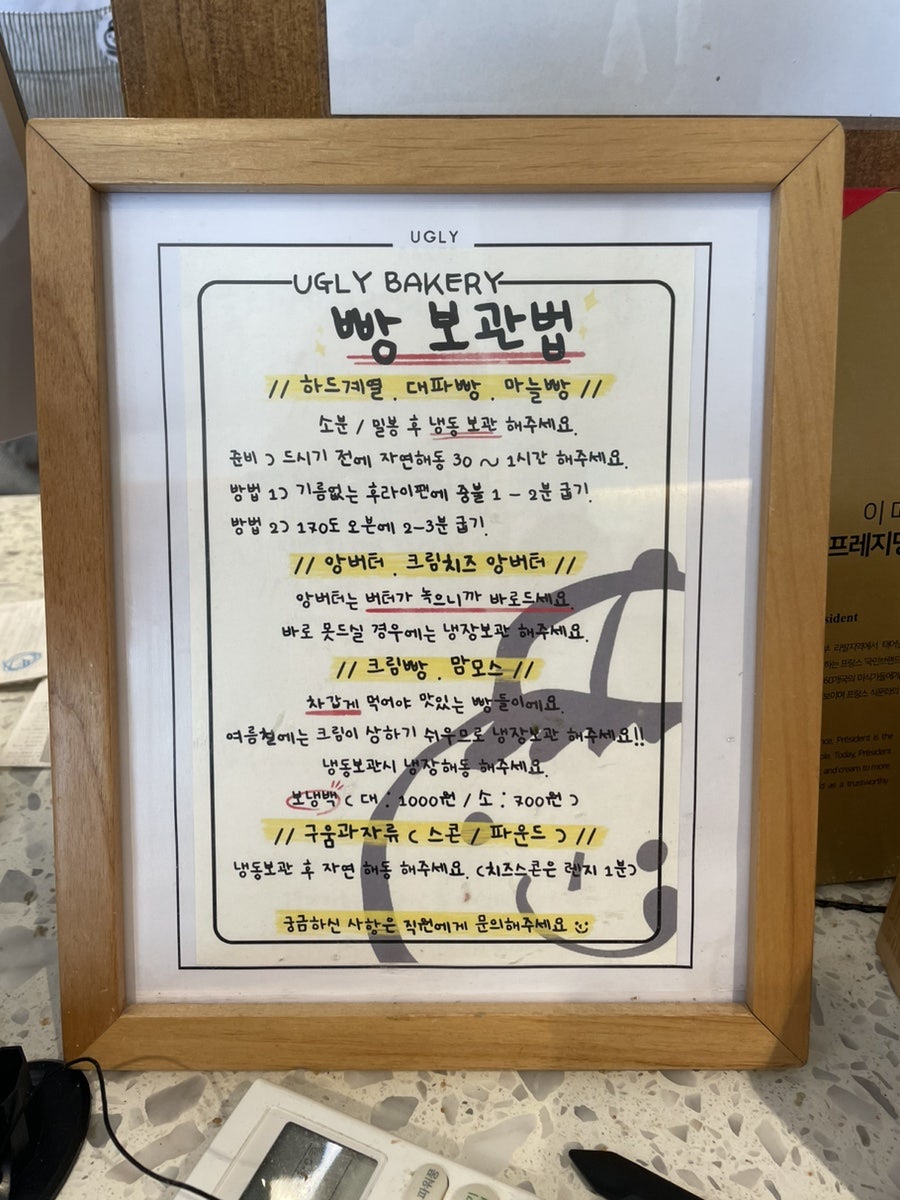 UGLY
UGLY BAKERY
빵 보관법
// 하드계열 . 대파빵 . 마늘빵 //
소분 / 밀봉 후 냉동 보관 해주세요.
준비 ) 드시기 전에 자연해동 30 ~ 1시간 해주세요.
방법 1) 기름없는 후라이팬에 중불 1 - 2분 굽기.
방법 2) 170도 오븐에 2-3분 굽기.
// 앙버터 . 크림치즈 앙버터 //
앙버터는 버터가 녹으니까 바로드세요.
바로 못드실 경우에는 냉장보관 해주세요.
// 크림빵 . 맘모스 //
차갑게 먹어야 맛있는 빵들이에요.
여름철에는 크림이 상하기 쉬우므로 냉장보관 해주세요!!
냉동보관시 냉장해동 해주세요.
보냉백 ( 대 : 1000원 / 소 : 700원 )
// 구움과자류 ( 스콘 / 파운드 ) //
냉동보관 후 자연 해동 해주세요. (치즈스콘은 렌지 1분)
궁금하신 사항은 직원에게 문의해주세요
프레지덩
sident
nce, Président is the
ble. Today, Président
and cream to more
d as a trustworthy
파워풍